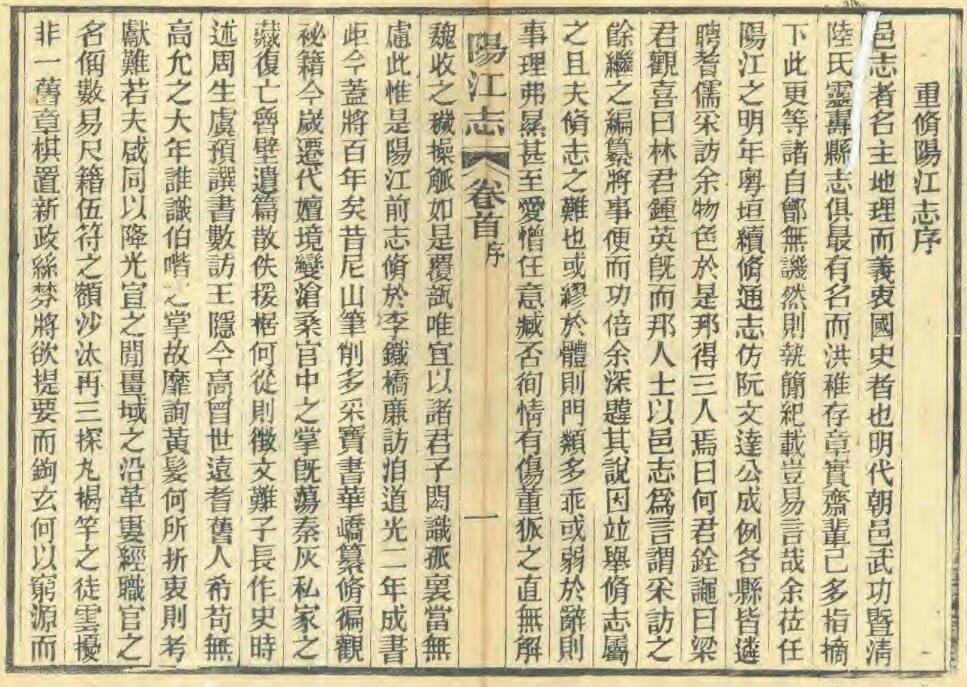 重脩陽江志序
邑志者名主地理而義衷國史者也明代朝邑武功暨清
陸氏靈壽縣志俱最有名而洪稚存章實齋輩己多指摘
下此更等諸自鄶無譏然則執簡紀載豈易言哉余莅任
陽江之明年粤垣續脩通志仿阮文達公成例各縣皆遴
聘耆儒采訪余物色於是邦得三人焉曰何君銓譝曰梁
君觀喜曰林君鍾英旣而邦人士以邑志爲言謂采訪之
餘繼之編纂將事便而功倍余深韙其說因竝舉脩志屬
之且夫脩志之難也或繆於體則門類多乖或弱於辭則
事理弗㬥甚至愛憎任意臧否徇情有傷董狐之直無解
陽江志 卷首 序 一
魏收之穢操觚如是覆瓿唯宜以諸君子閎識孤裏當無
慮此惟是陽江前志脩於李鐵橋廉訪洎道光二年成書
距今蓋將百年矣昔尼山筆削多采寶書華嶠纂脩徧觀
祕籍今歲遷代嬗境變滄桑官中之掌旣蕩秦灰私家之
藏復亡魯壁遺篇散佚援椐何從則徵文難子長作史時
述周生虞預譔書數訪王隱今高曾世遠耆舊人希苟無
高允之大年誰識伯喈之掌故靡詢黃髮何所折衷則考
獻難若夫咸同以降光宣之閒畺域之沿革婁經職官之
名偁數易尺籍伍符之額沙汰再三探丸楬竿之徒雲擾
非一舊章棋置新政絲棼將欲提要而鉤玄何以窮源而